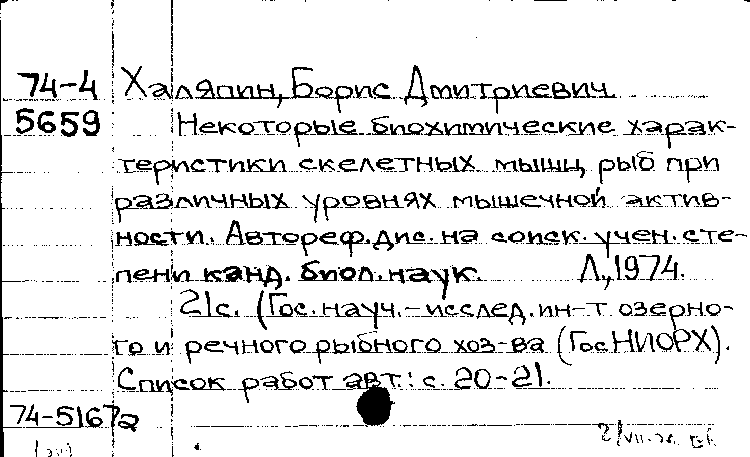 74-4 Халяпин, Борис Дмитриевич
5659 Некоторые биохимические харак-
теристики скелетных мышц рыб при
различных уровнях мышечной актив-
ности. Автореф. дис. на соиск. учен. сте-
пени канд. биол. наук. Л., 1974.
21с. (Гос. науч.-исслед. ин-т озерно-
го и речного рыбного хоз-ва (ГосНИОРХ).
Список работ авт.: с. 20-21.
74-5167а